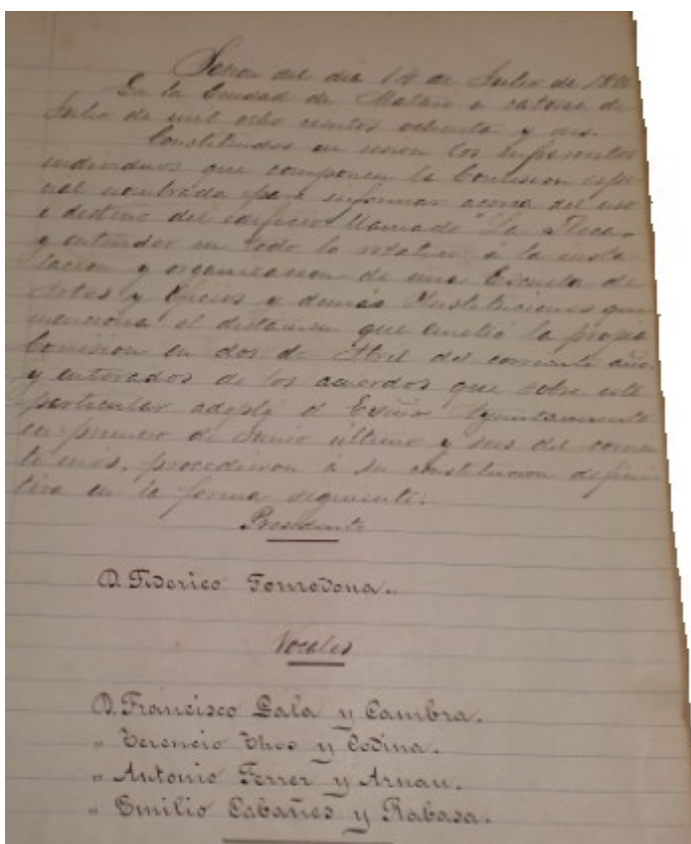 Sesion del dia 14 de Julio de 1886
En la Ciudad de Mataró a catorce de
Julio de mil ocho cientos ochenta y seis.
Constituidos en sesion los infrascritos
individuos que componen la Comision espe-
cial nombrada para informar acerca del uso
o destino del edificio llamado "La Beca"
y entender en todo lo relativo á la insta-
lacion y organizacion de una Escuela de
Artes y Oficios y demás Instituciones que
menciona el dictamen que emitió la propia
Comision en dos de Abril del corriente año,
y enterados de los acuerdos que sobre este
particular adoptó el Excmo. Ayuntamiento
en primero de Junio último y seis del corrien
te mes, procedieron á su constitucion defini
tiva en la forma siguiente:
Presidente
D. Federico Fonrodona.
Vocales
D. Francisco Gala y Cambra.
" Terencio Thos y Codina.
" Antonio Ferrer y Arnau.
" Emilio Cabañes y Rabasa.